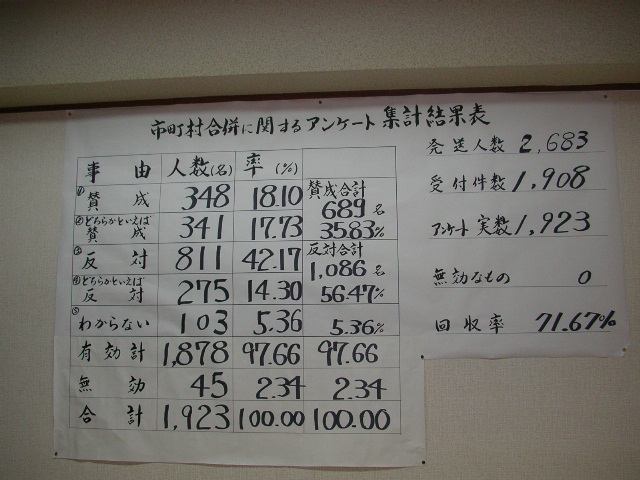 市町村合併に関するアンケート集計結果表
事由 人数(名) 率(%)
①賛成 348 18.10 賛成合計 689名
②どちらかといえば賛成 341 17.73 35.83%
③反対 811 42.17 反対合計 1,086名
④どちらかといえば反対 275 14.30 56.47%
⑤わからない 103 5.36 5.36%
有効計 1,878 97.66 97.66
無効 45 2.34 2.34
合計 1,923 100.00 100.00
発送人数 2,683
受付件数 1,908
アンケート実数 1,923
無効なもの 0
回収率 71.67%